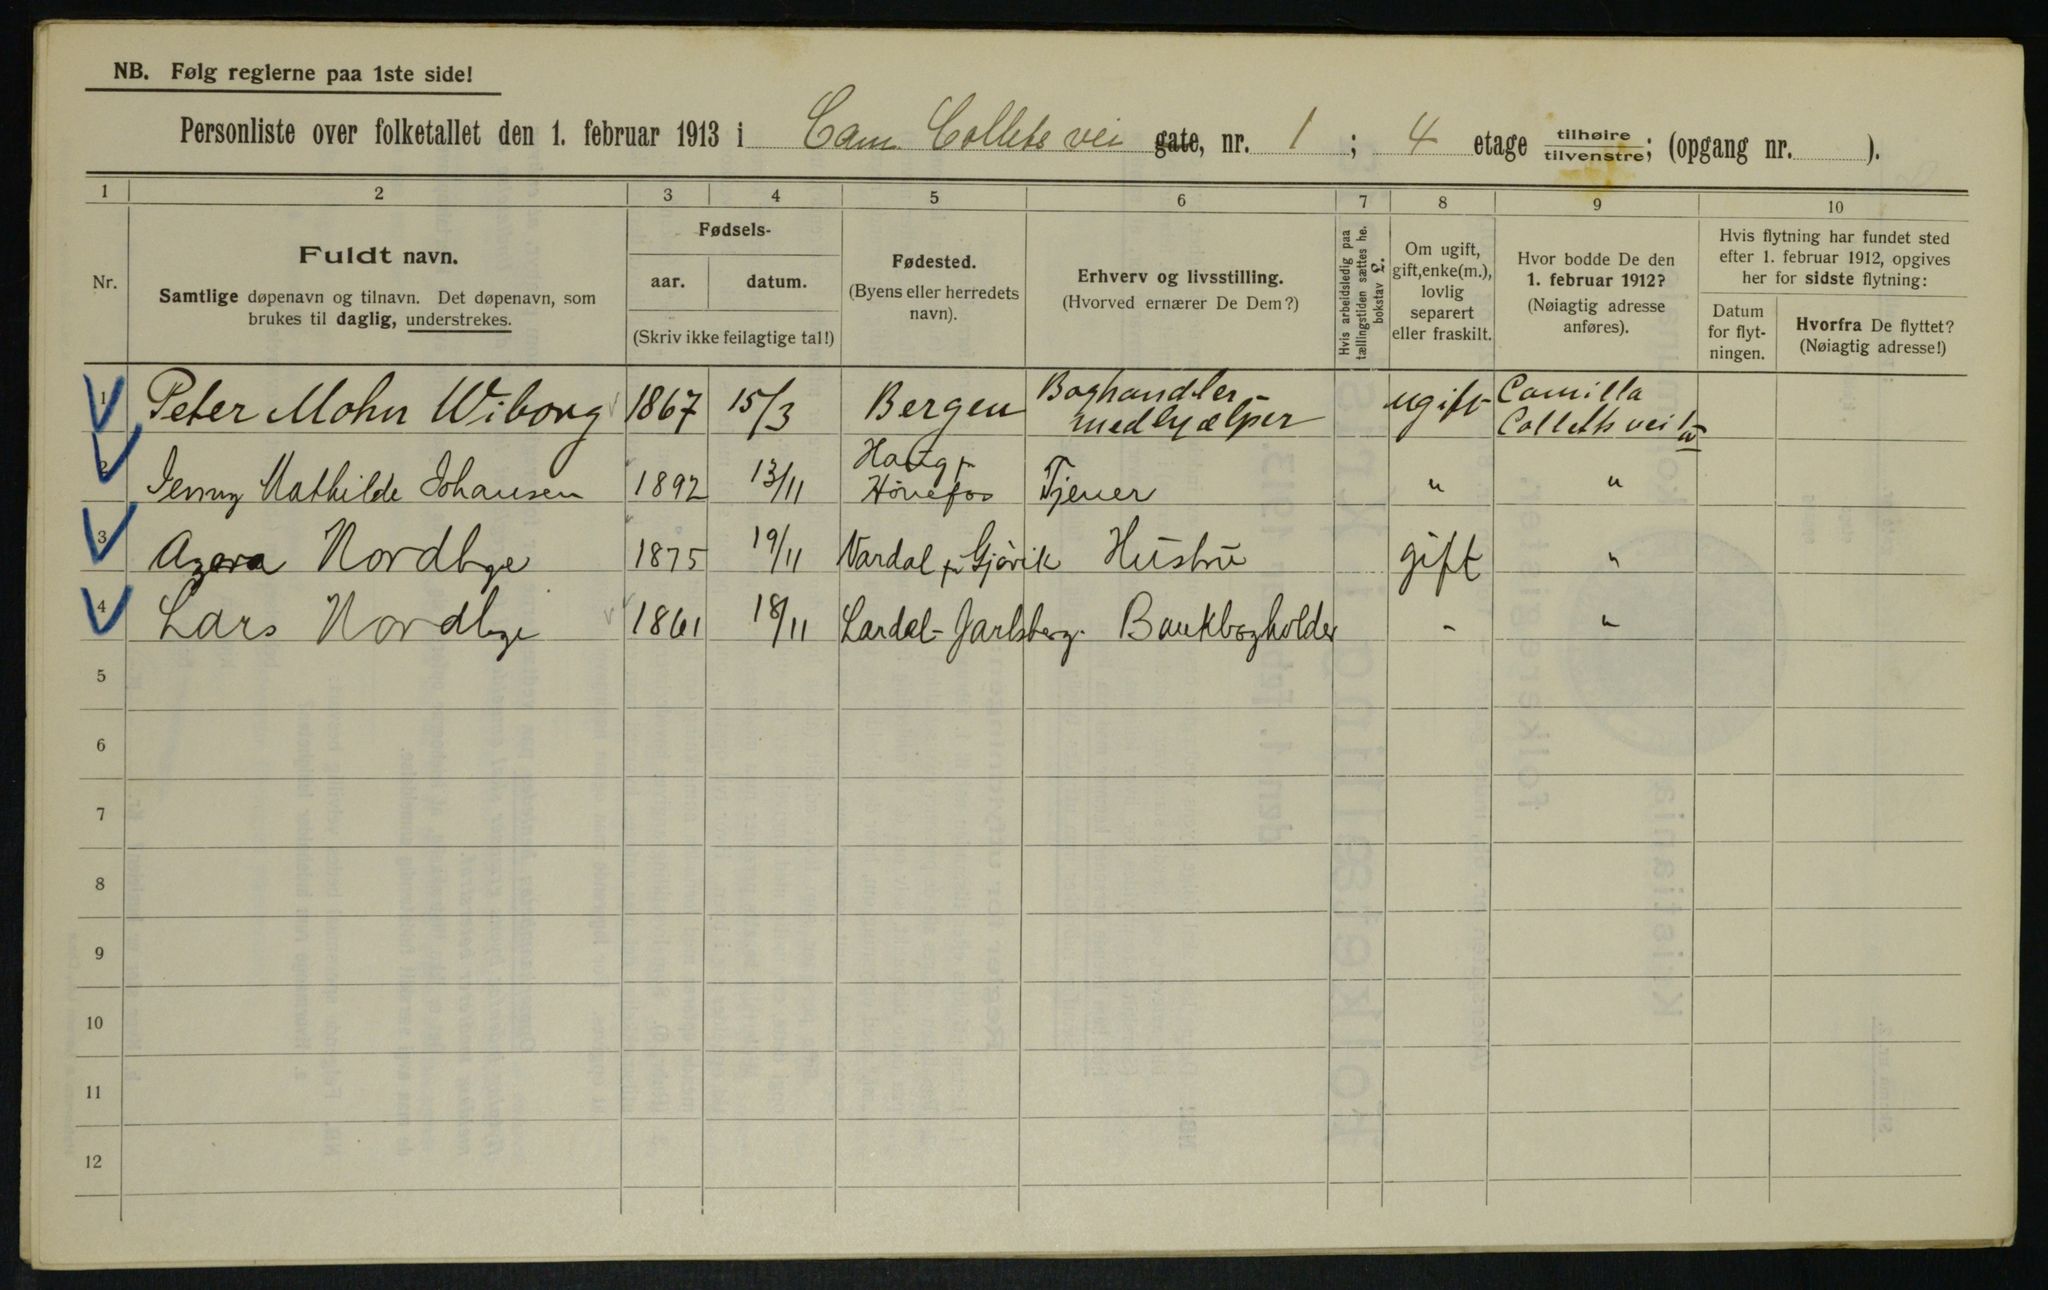 NB. Følg reglerne paa 1ste side!
Personliste over folketallet den 1. februar 1913 i Cam. Colletts vei gate, nr. 1 ; 4 etage tilhøire/tilvenstre; (opgang nr. ).
1 2 3 4 5 6 7 8 9 10
Nr.
Fuldt navn.
Samtlige døpenavn og tilnavn. Det døpenavn, som
brukes til daglig, understrekes.
Fødsels-
aar. datum.
(Skriv ikke feilagtige tal!)
Fødested.
(Byens eller herredets
navn).
Erhverv og livsstilling.
(Hvorved ernærer De Dem?)
Hvis arbeidsledig paa
tællingstiden sættes her
bokstav L.
Om ugift,
gift, enke(m.),
lovlig
separert
eller fraskilt.
Hvor bodde De den
1. februar 1912?
(Nøiagtig adresse
anføres).
Hvis flytning har fundet sted
efter 1. februar 1912, opgives
her for sidste flytning:
Datum
for flyt-
ningen.
Hvorfra De flyttet?
(Nøiagtig adresse!)
1 Peter Mohn Wiborg 1867 15/3 Bergen Boghandler-medhjælper ugift Camilla Colletts vei 1 IV
2 Jenny Mathilde Johansen 1892 13/11 Haug pr Hönefos Tjener " "
3 Agora Nordbye 1875 19/11 Vardal pr Gjövik Hustru gift "
4 Lars Nordbye 1861 18/11 Lardal - Jarlsberg. Bankbogholder - "
5
6
7
8
9
10
11
12